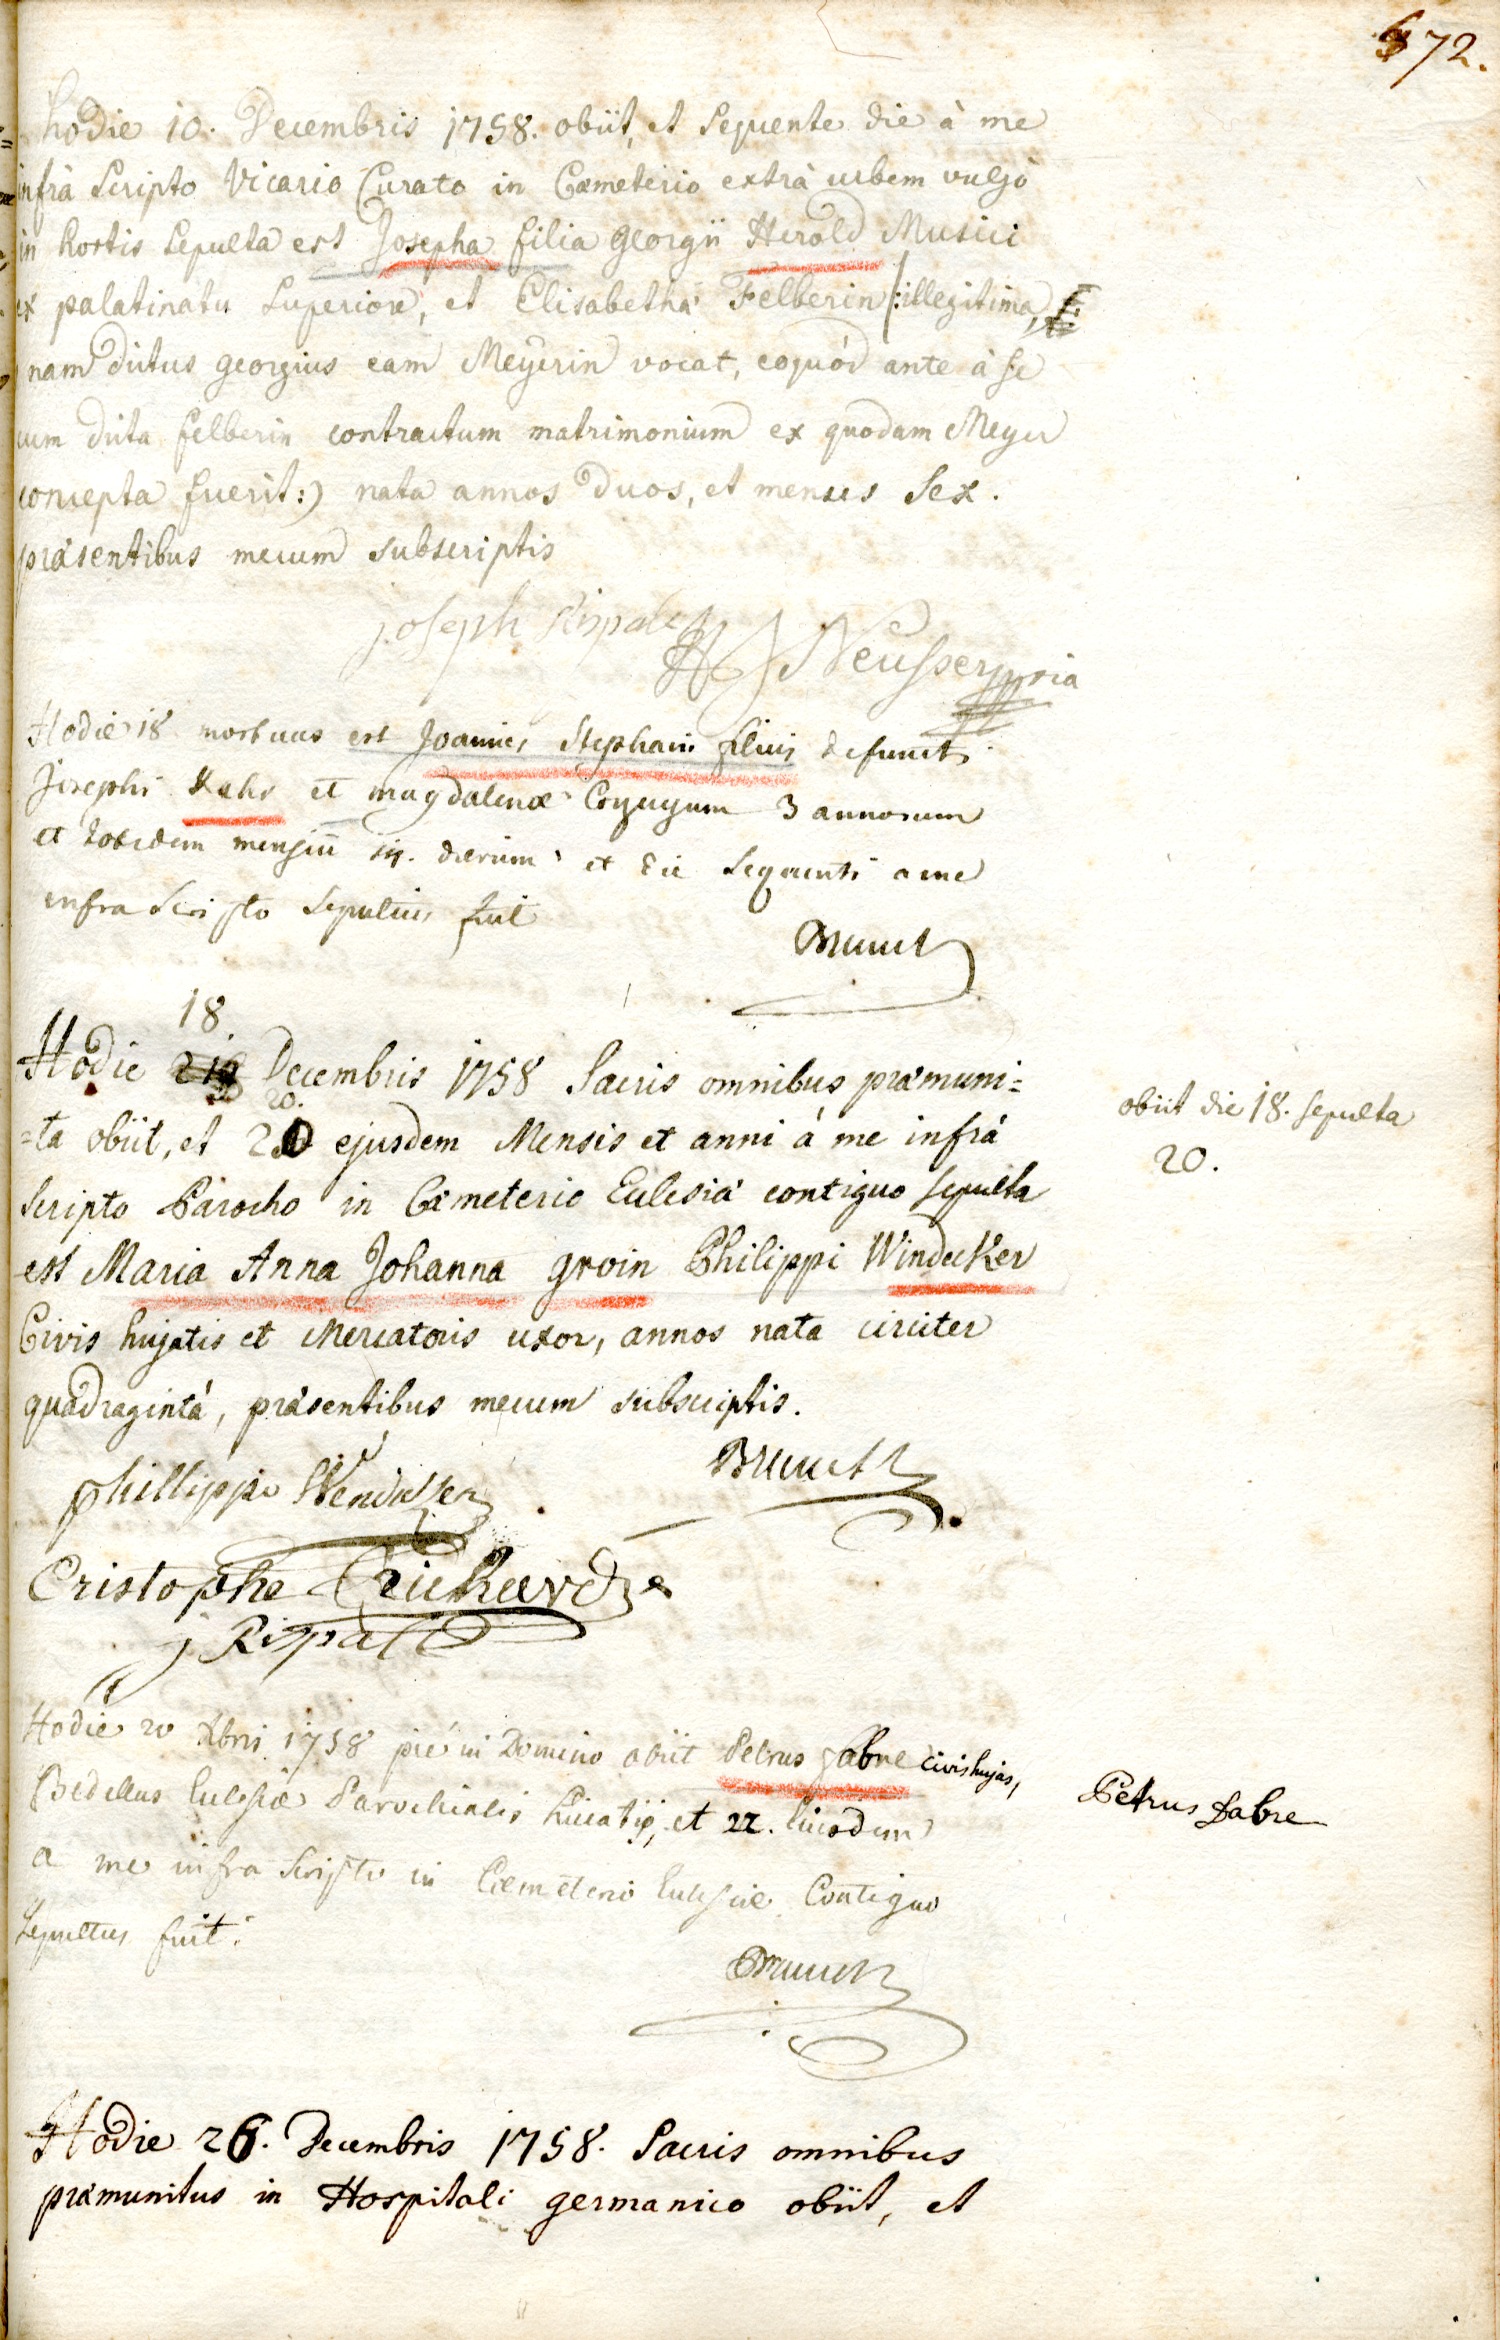 572.
hodie 10. Decembris 1758. obiit, et Sequente die à me
infrà Scripto Vicario Curato in Cœmeterio extrà urbem vulgò
in hortis Sepulta est Josepha filia Georgii Herold Musici
ex palatinatu Superiore, et Elisabetha Felberin (:illegitima,
nam dictus georgius eam Meyerin vocat, eoquòd ante à se
cum dicta felberin contractum matrimonium ex quodam Meyer
concepta fuerit:) nata annos duos, et menses Sex.
præsentibus mecum subscriptis
joseph Rispal
Neusser
Hodie 18 mortuus est Joannes Stephani filius defuncti
Josephi et magdalenæ Conjugum 3 annorum
et totidem mensiū dierum et die Sequenti a me
infra Scripto Sepultus fuit
Brunck
18.
Hodie Decembris 1758 Sacris omnibus præmuni=
20.
=ta obiit, et 20 ejusdem Mensis et anni à me infrà
Scripto Parocho in Cœmeterio Eclesiæ contiguo Sepulta
est Maria Anna Johanna groin Philippi Windecker
Civis hujatis et Mercatoris uxor, annos nata circiter
quadragintà, præsentibus mecum subscriptis.
obiit die 18. sepulta
20.
Brunck
phillippe Wendecker
Cristophe
j Rispal
Hodie 20 Xbris 1758 piè in Domino obiit Petrus fabre civis hujas,
Bedellus Eclesiæ Parochialis hujatis, et 22. Ejusdem
a me infra Scripto in Cœmeterio Eclesiæ Contiguo
Sepultus fuit.
Petrus Fabre
Brunck
Hodie 26. Decembris 1758. Sacris omnibus
præmunitus in Hospitali germanico obiit, et